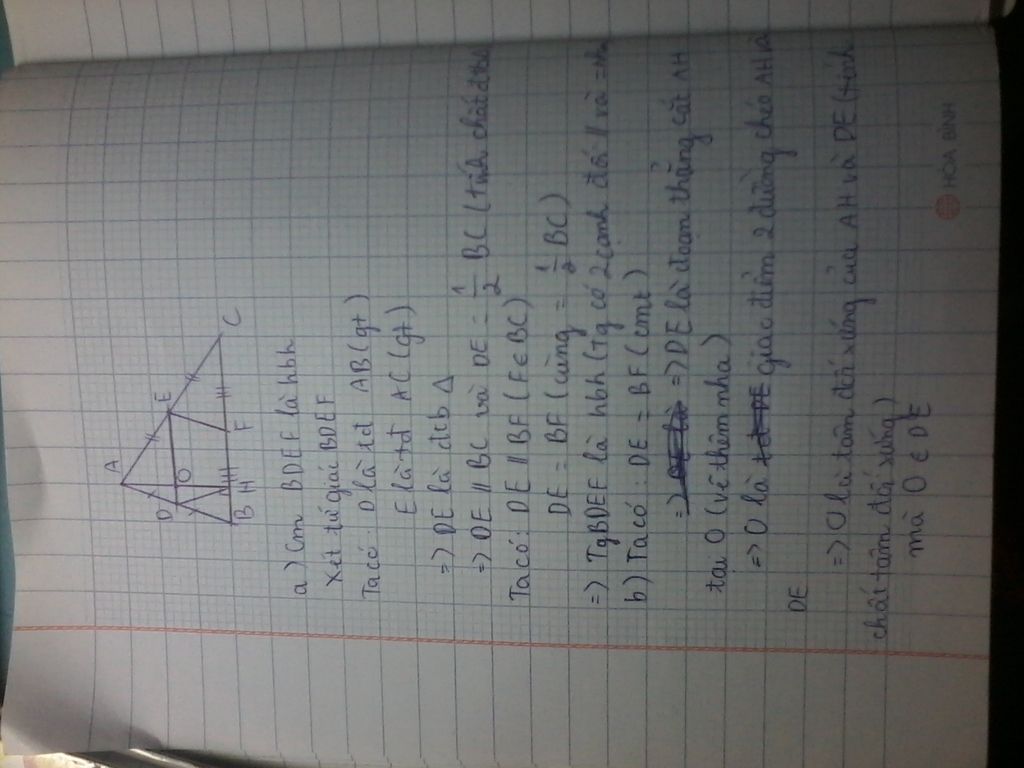 A
D
E
O
B
H
F
C
a) Cm BDEF là hbh
Xét tứ giác BDEF
Ta có: D là tđ AB (gt)
E là tđ AC (gt)
=> DE là đtb Δ
=> DE // BC và DE = 1/2 BC (tính chất đtb Δ
Ta có: DE // BF (F ∈ BC)
DE = BF (cùng = 1/2 BC)
=> TgBDEF là hbh (Tg có 2 cạnh đối // và =
b) Ta có: DE = BF (cmt)
=> => DE là đoạn thẳng cắt AH
tại O (vẽ thêm nha)
=> O là giao điểm 2 đường chéo AH và
DE
=> O là tâm đối xứng của AH và DE (tính
chất tâm đối xứng)
mà O ∈ DE
HÒA BÌNH